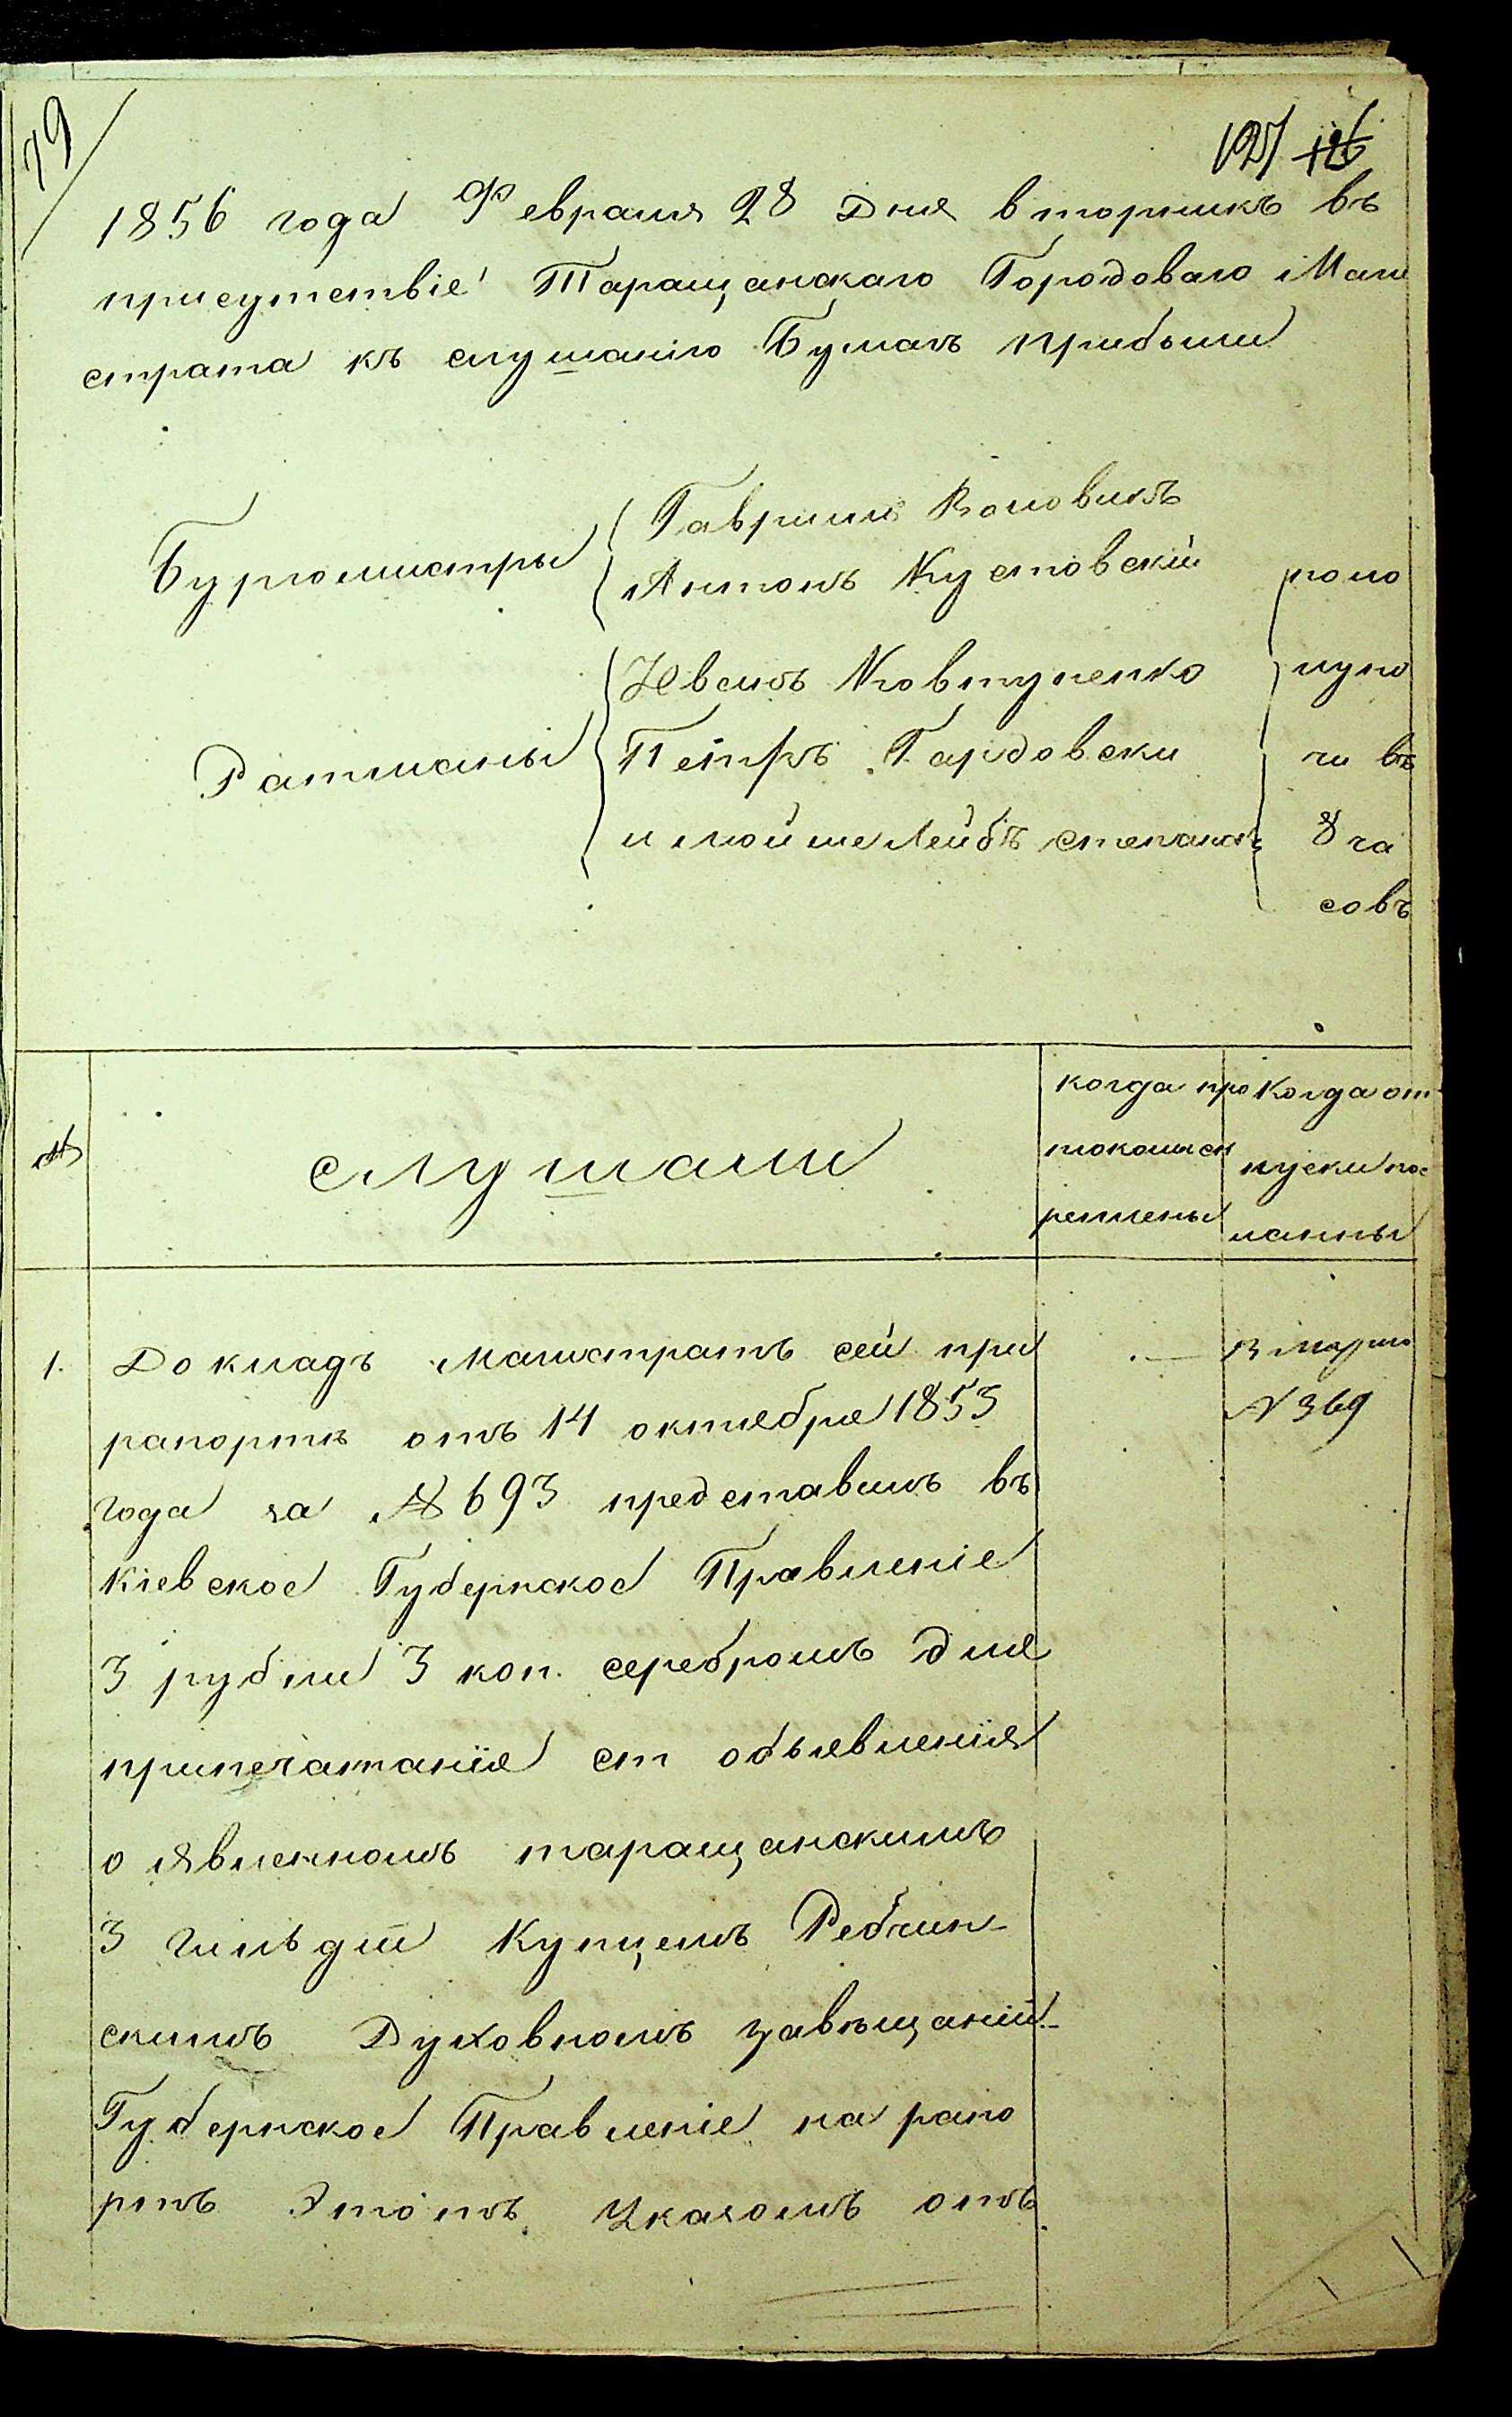 79
127 126
1856 года Февраля 28 Дня вторникъ въ
присутствіе Таращанскаго Городоваго Маги
страта къ слушанію бумагъ прибыли
Бургомистры
Гавриилъ Воловикъ
Антонъ Кустовскій
Ратманы
Иванъ Ковтуненко
Петръ Гардовски
и мойше Лейбъ степанск
пополо
луно
чи въ
8 ча
совъ
№
слушали
когда про
токолы ся
решены
Когда от
пуски пос
ланны
1. Докладъ Магистратъ сей при
рапортѣ отъ 14 октября 1853
года за № 693 представилъ въ
Кіевское Губернское Правленіе
3 рубли 3 коп. серебромъ для
припечатанія ст объявленія
о явленномъ таращанскимъ
3 гильдіи Купцемъ Ребчин-
скимъ Духовномъ завѣщаніи.-
Губернское Правленіе на рапо
ртъ Этотъ Указомъ отъ
13 марта
№ 369